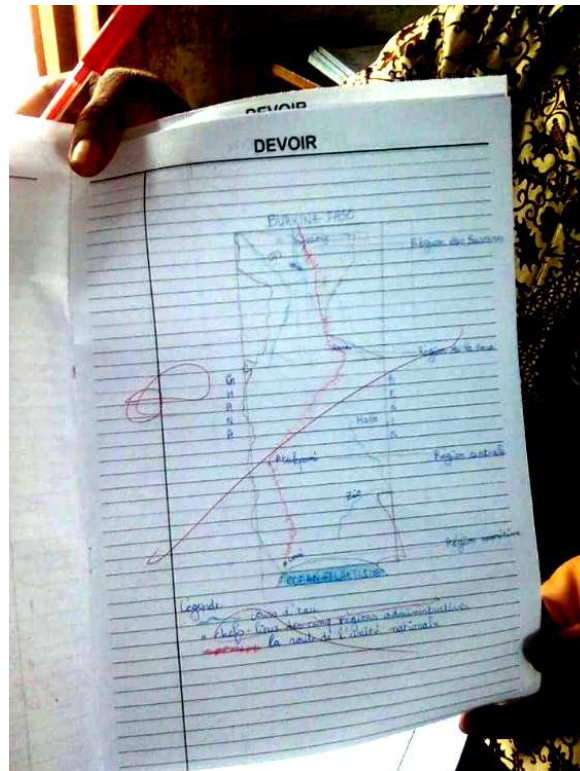 DEVOIR
DEVOIR
BURKINA FASO
Région des Savanes
Région de la
G
H
A
N
A
B
E
N
I
N
Région centrale
Région maritime
OCEAN ATLANTIQUE
Légende
cours d'eau
Chefs-lieux des cinq régions administratives
la route de l'unité nationale